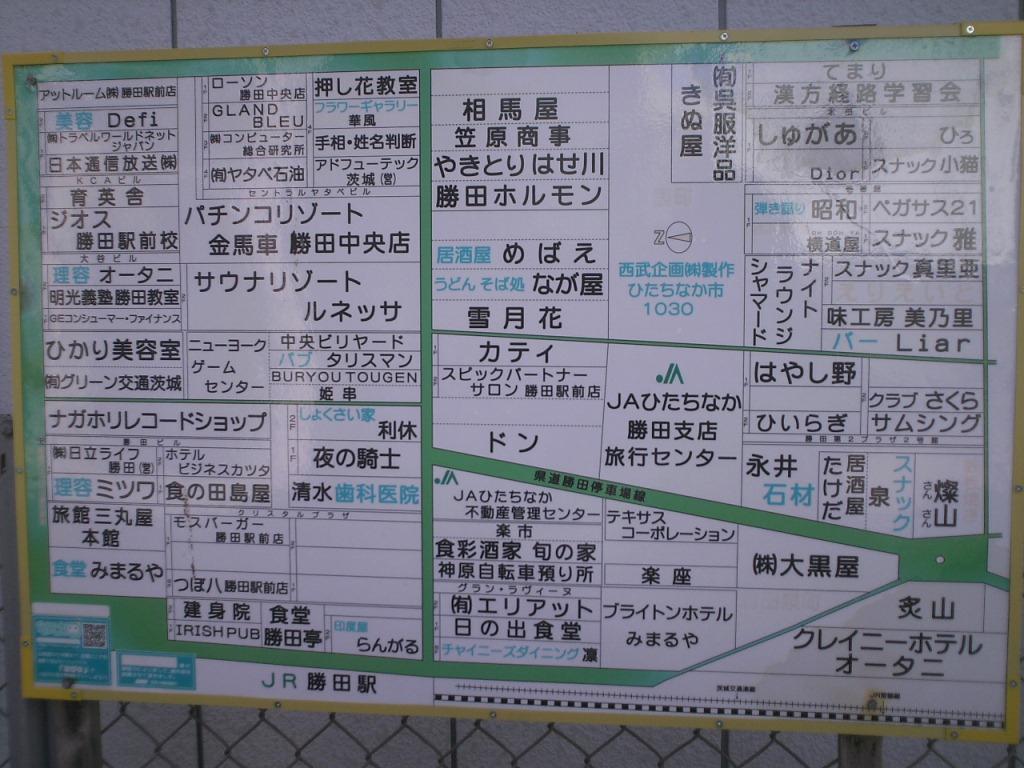 アットルーム㈱勝田駅前店
美容 Defi
㈱トラベルワールドネット
ジャパン
日本通信放送㈱
KCAビル
育英舎
ジオス
勝田駅前校
大谷ビル
理容 オータニ
明光義塾勝田教室
GEコンシューマー・ファイナンス
ひかり美容室
㈲グリーン交通茨城
ローソン
勝田中央店
GLAND
BLEU
㈱コンピューター
総合研究所
㈲ヤタベ石油
押し花教室
フラワーギャラリー
華風
手相・姓名判断
アドフューテック
茨城(営)
セントラルヤタベビル
パチンコリゾート
金馬車 勝田中央店
サウナリゾート
ルネッサ
ニューヨーク
ゲーム
センター
中央ビリヤード
パブ タリスマン
BURYOU TOUGEN
姫串
ナガホリレコードショップ
勝田ビル
㈱日立ライフ
勝田(営)
ホテル
ビジネスカツタ
理容 ミツワ
食の田島屋
2F
しょくさい家
利休
1F
夜の騎士
清水歯科医院
クリスタルプラザ
旅館三丸屋
本館
食堂 みまるや
モスバーガー
勝田駅前店
つぼ八勝田駅前店
建身院
IRISH PUB
食堂
勝田亭
印度屋
らんがる
JR勝田駅
相馬屋
笠原商事
やきとりはせ川
勝田ホルモン
居酒屋 めばえ
うどん そば処 なが屋
雪月花
カティ
スピックパートナー
サロン 勝田駅前店
ドン
㈲呉服洋品
きぬ屋
Z
西武企画㈱製作
ひたちなか市
1030
JA
JAひたちなか
勝田支店
旅行センター
県道勝田停車場線
JA
JAひたちなか
不動産管理センター
楽市
食彩酒家 旬の家
神原自転車預り所
グラン・ラヴィーヌ
㈲エリアット
日の出食堂
チャイニーズダイニング 凛
テキサス
コーポレーション
楽座
ブライトンホテル
みまるや
てまり
漢方経路学習会
しゅがあ
ひろ
Dior
スナック小猫
弾き語り 昭和
横道屋
ペガサス21
スナック 雅
ナイト
ラウンジ
シャマード
スナック真里亜
えりえいと
味工房 美乃里
バー Liar
はやし野
ひいらぎ
クラブ さくら
サムシング
勝田第2プラザ2号館
永井
石材
居酒屋
たけだ
スナック
泉
燦山
さん さん
㈱大黒屋
炙山
クレイニーホテル
オータニ
茨城交通湊線
JR常磐線